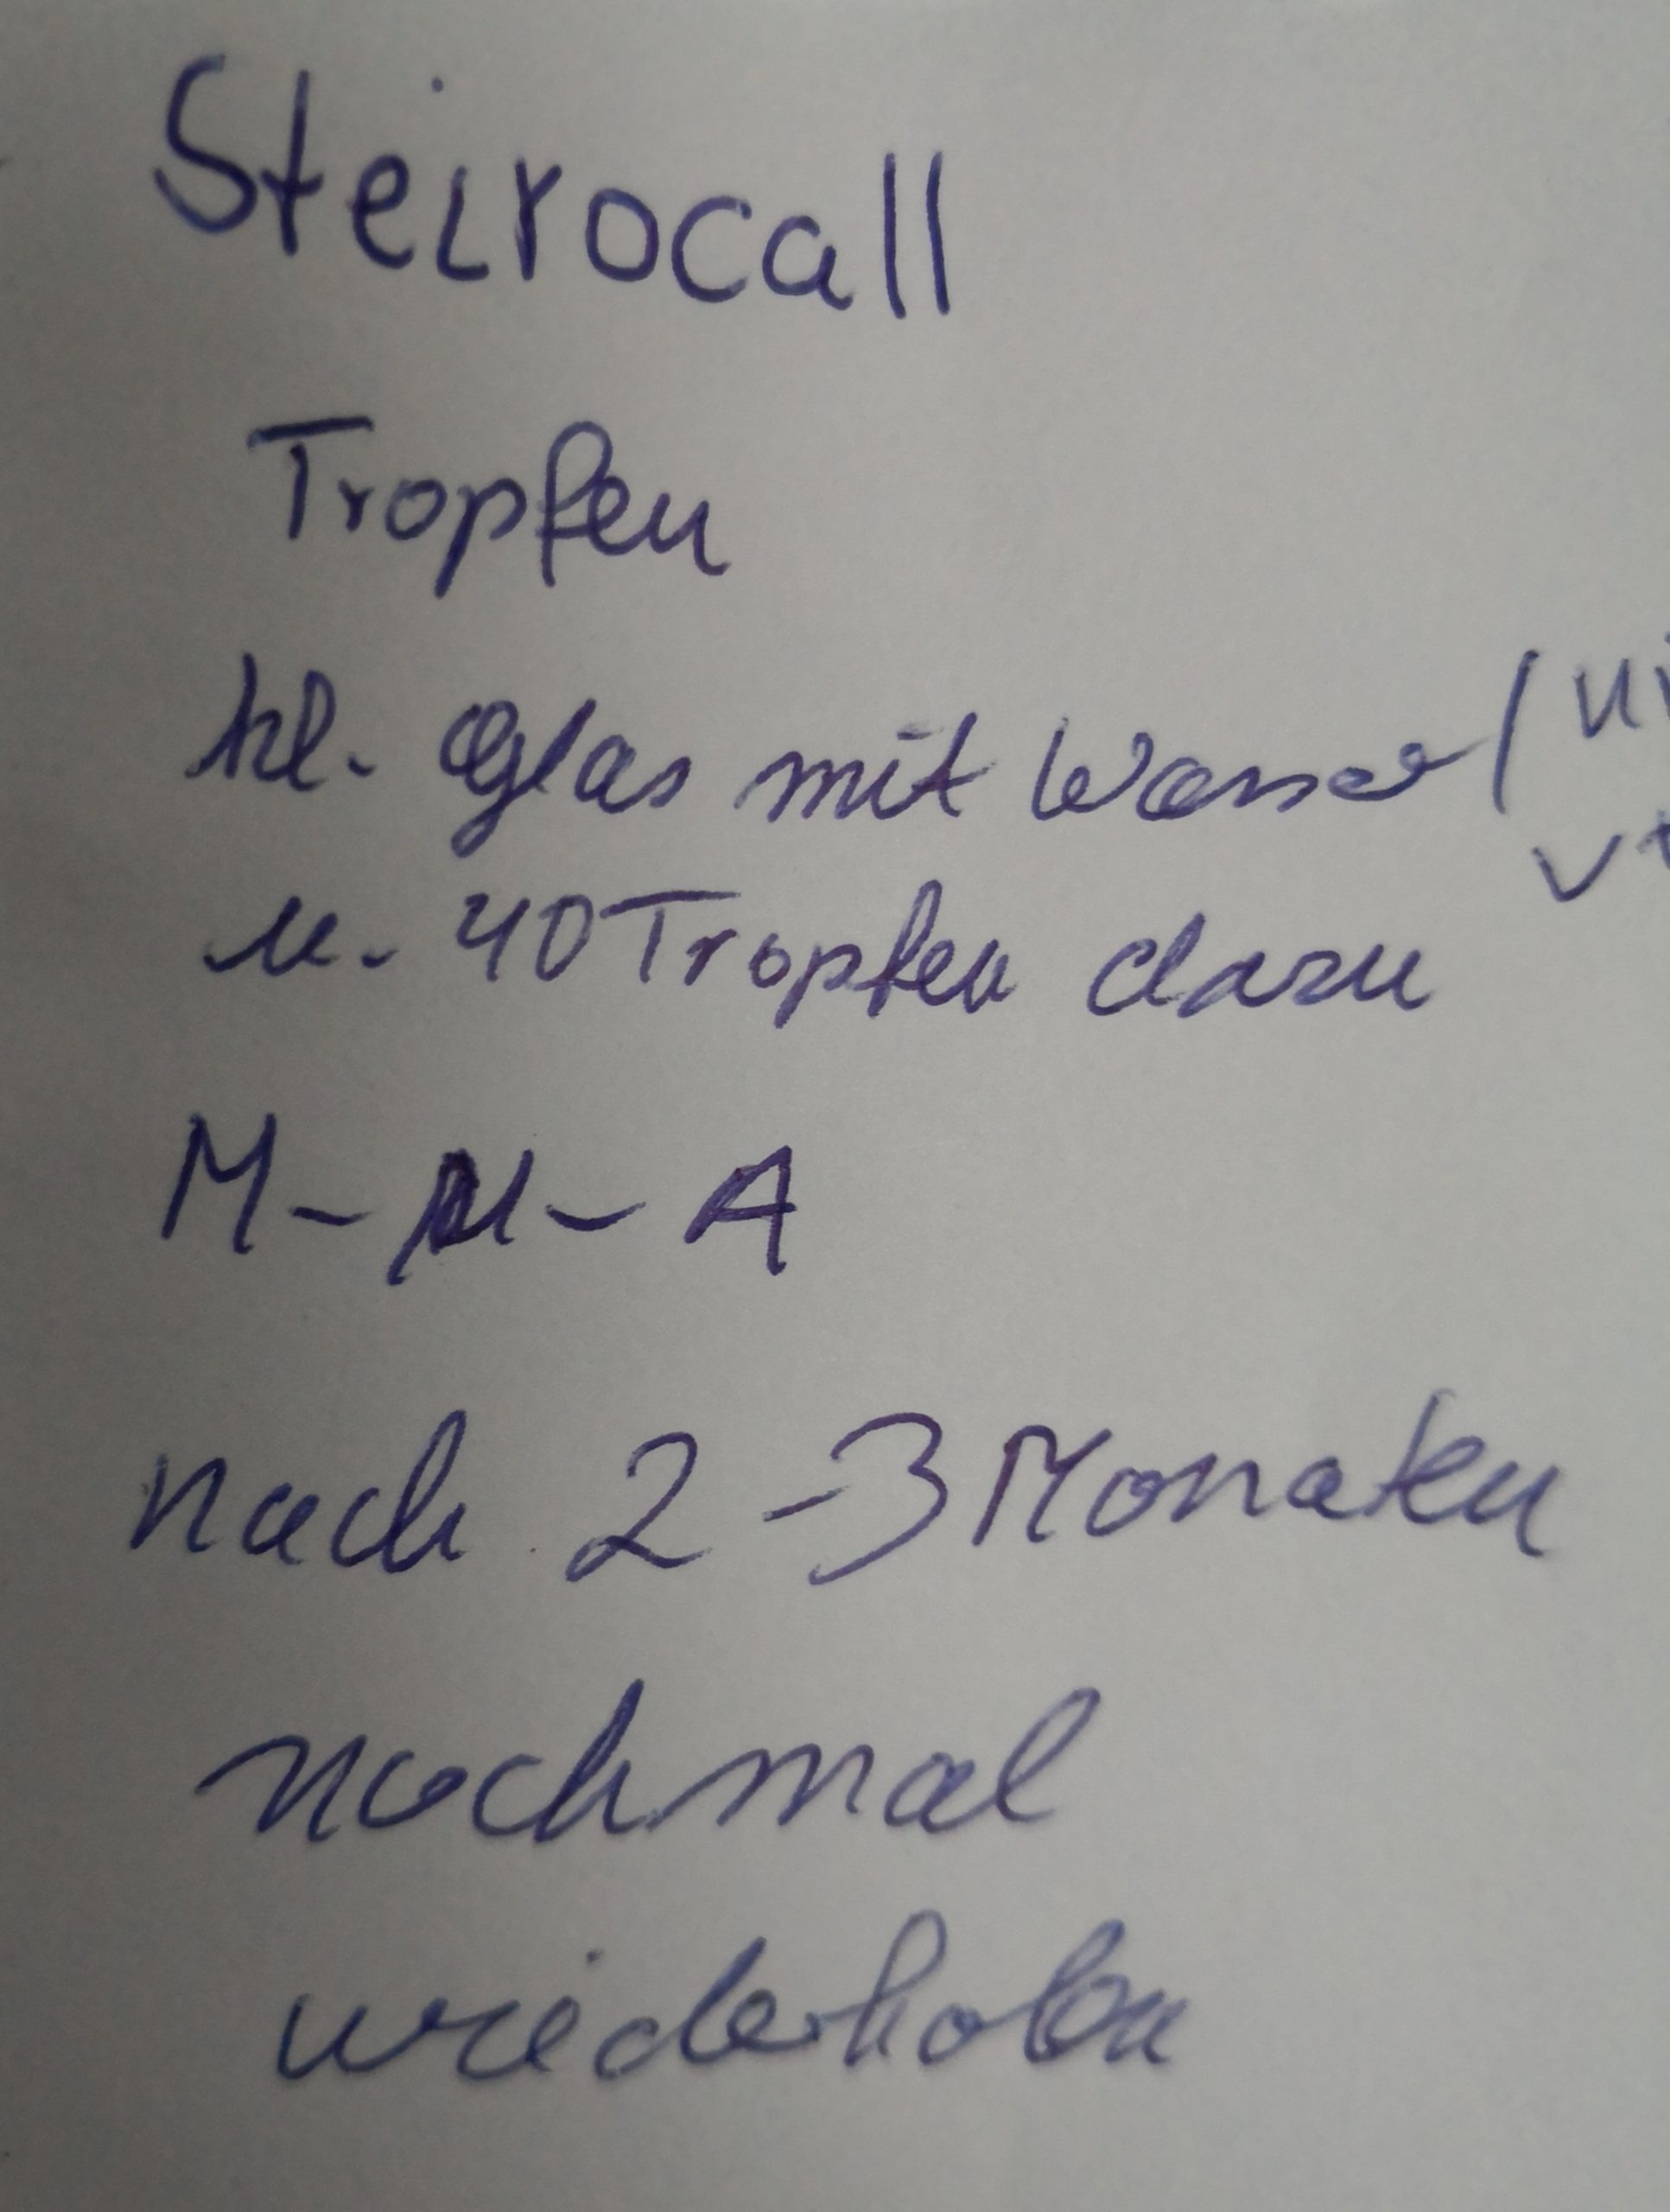 Steirocall
Tropfen
kl. Glas mit Wasser
u. 40 Tropfen dazu
M - M - A
nach 2-3 Monaten
nochmal
wiederholen